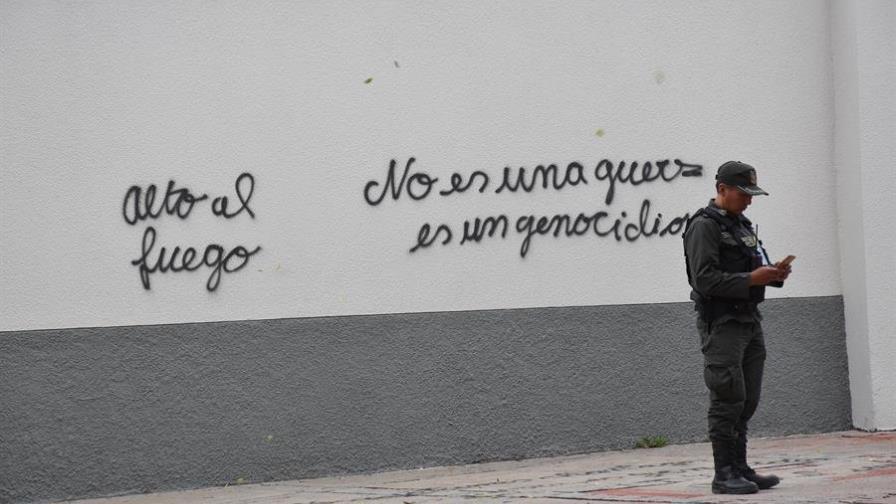 Alto al
fuego
No es una guerra
es un genocidio